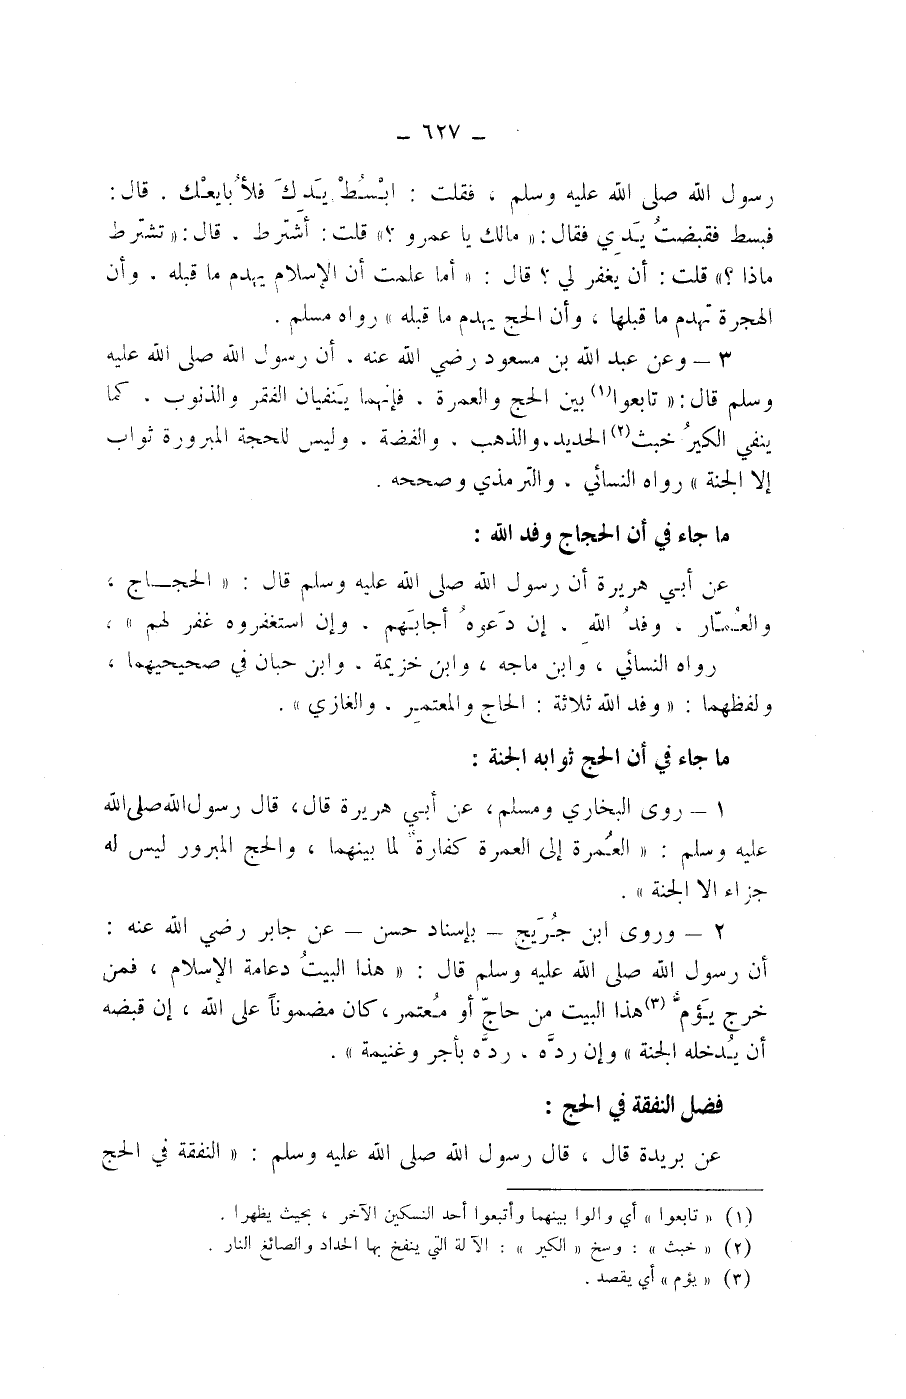 ـ ٦٢٧ ـ
رسول الله صلى الله عليه وسلم ، فقلت : ابْسُطْ يَدِكَ فلأُبايعْك . قال :
فبسط فقبضتُ يَدِي فقال : « مالك يا عمرو ؟» قلت : أشترط . قال : « تشترط
ماذا ؟» قلت : أن يغفر لي ؟ قال : « أما علمت أن الإسلام يهدم ما قبله . وأن
الهجرة تهدم ما قبلها ، وأن الحج يهدم ما قبله » رواه مسلم .
٣ ـ وعن عبد الله بن مسعود رضي الله عنه . أن رسول الله صلى الله عليه
وسلم قال : « تابعوا(١) بين الحج والعمرة . فإنهما يَنفيان الفقر والذنوب . كما
ينفي الكيرُ خبث(٢) الحديد . والذهب . والفضة . وليس للحجة المبرورة ثواب
إلا الجنة » رواه النسائي . والترمذي وصححه .
ما جاء في أن الحجاج وفد الله :
عن أبي هريرة أن رسول الله صلى الله عليه وسلم قال : « الحجـــاج ،
والعُمّار . وفدُ اللهِ . إن دَعوهُ أجابَهم . وإن استغفروه غفر لهم » ،
رواه النسائي ، وابن ماجه ، وابن خزيمة . وابن حبان في صحيحيهما ،
ولفظهما : « وفد الله ثلاثة : الحاج والمعتمِر . والغازي » .
ما جاء في أن الحج ثوابه الجنة :
١ ـ روى البخاري ومسلم ، عن أبي هريرة قال ، قال رسول الله صلى الله
عليه وسلم : « العُمرة إلى العمرة كفارةٌ لما بينهما ، والحج المبرور ليس له
جزاء الا الجنة » .
٢ ـ وروى ابن جُرَيج ـ بإسناد حسن ـ عن جابر رضي الله عنه :
أن رسول الله صلى الله عليه وسلم قال : « هذا البيتُ دعامة الإسلام ، فمن
خرج يَؤمُّ(٣) هذا البيت من حاجّ أو مُعتمر ، كان مضموناً على الله ، إن قبضه
أن يُدخله الجنة » وإن ردَّه . ردَّه بأجر وغنيمة » .
فضل النفقة في الحج :
عن بريدة قال ، قال رسول الله صلى الله عليه وسلم : « النفقة في الحج
(١) « تابعوا » أي والوا بينهما وأتبعوا أحد النسكين الآخر ، بحيث يظهرا .
(٢) « خبث » : وسخ « الكير » : الآلة التي ينفخ بها الحداد والصائغ النار .
(٣) « يؤم » أي يقصد .